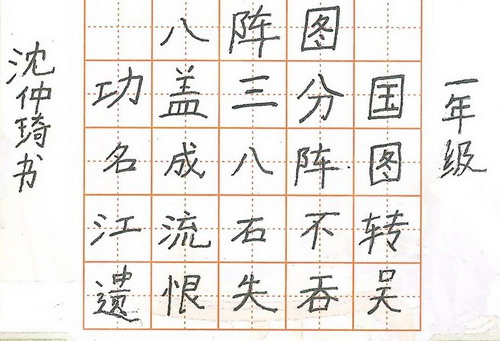 八阵图
功盖三分国
名成八阵图
江流石不转
遗恨失吞吴
一年级
沈仲琦书